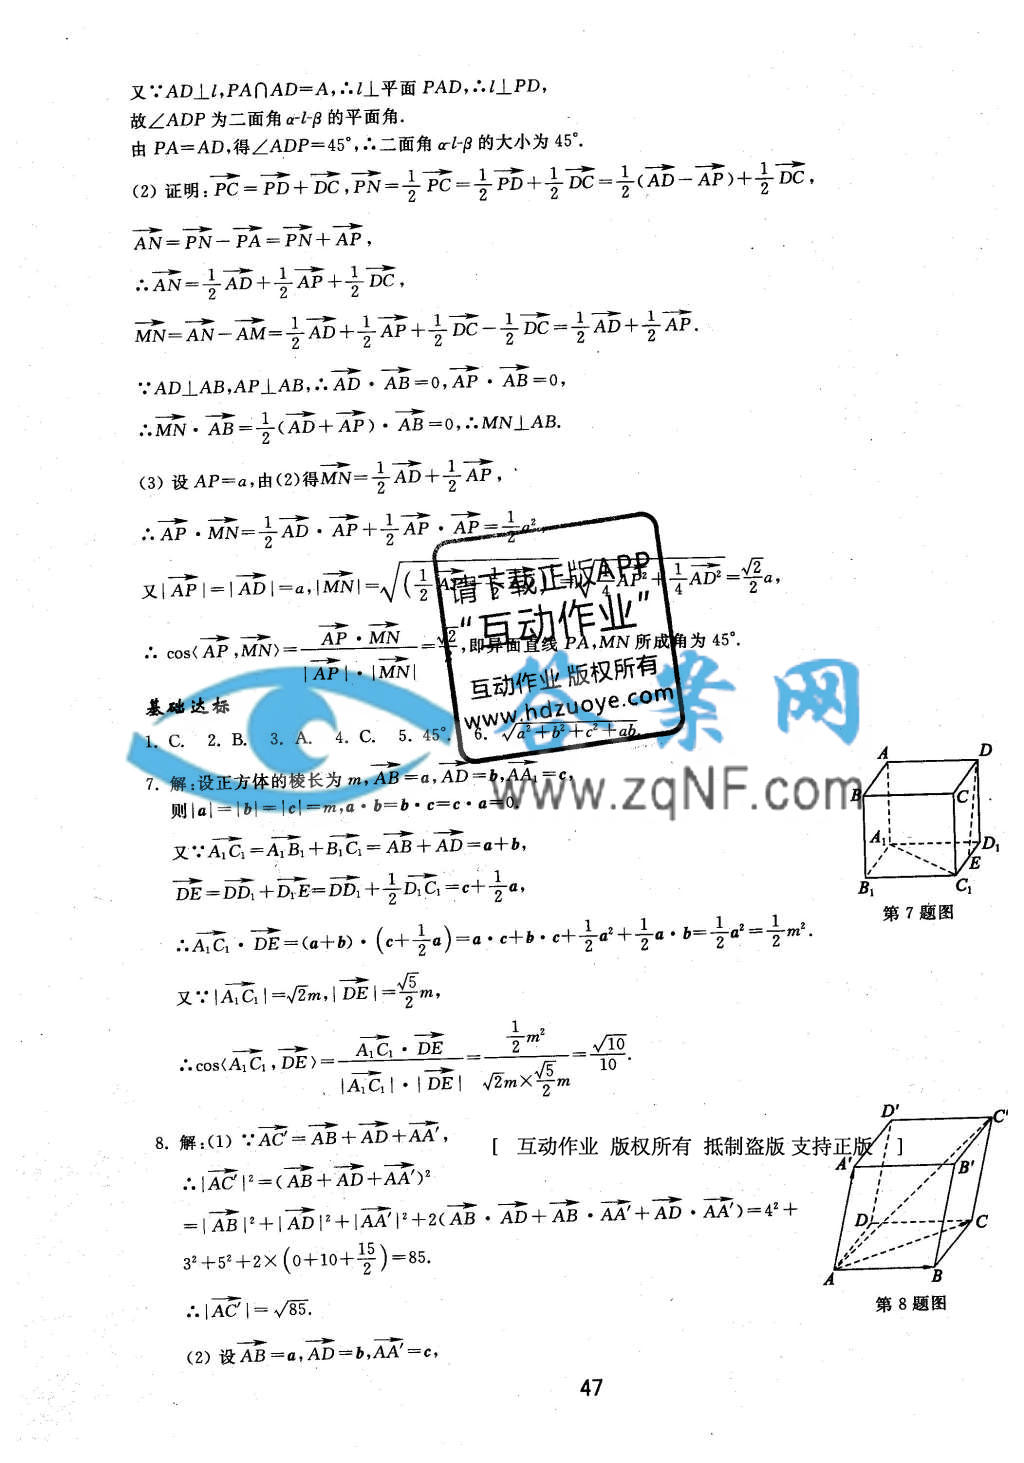 又∵AD⊥l,PA∩AD=A,∴l⊥平面 PAD,∴l⊥PD,
故∠ADP 为二面角 α-l-β 的平面角.
由 PA=AD,得∠ADP=45°,∴二面角 α-l-β 的大小为 45°.
(2) 证明:$\overrightarrow{PC}=\overrightarrow{PD}+\overrightarrow{DC},\overrightarrow{PN}=\frac{1}{2}\overrightarrow{PC}=\frac{1}{2}\overrightarrow{PD}+\frac{1}{2}\overrightarrow{DC}=\frac{1}{2}(\overrightarrow{AD}-\overrightarrow{AP})+\frac{1}{2}\overrightarrow{DC}$,
$\overrightarrow{AN}=\overrightarrow{PN}-\overrightarrow{PA}=\overrightarrow{PN}+\overrightarrow{AP}$,
∴$\overrightarrow{AN}=\frac{1}{2}\overrightarrow{AD}+\frac{1}{2}\overrightarrow{AP}+\frac{1}{2}\overrightarrow{DC}$,
$\overrightarrow{MN}=\overrightarrow{AN}-\overrightarrow{AM}=\frac{1}{2}\overrightarrow{AD}+\frac{1}{2}\overrightarrow{AP}+\frac{1}{2}\overrightarrow{DC}-\frac{1}{2}\overrightarrow{DC}=\frac{1}{2}\overrightarrow{AD}+\frac{1}{2}\overrightarrow{AP}$.
∵AD⊥AB,AP⊥AB,∴$\overrightarrow{AD}·\overrightarrow{AB}=0,\overrightarrow{AP}·\overrightarrow{AB}=0$,
∴$\overrightarrow{MN}·\overrightarrow{AB}=\frac{1}{2}(\overrightarrow{AD}+\overrightarrow{AP})·\overrightarrow{AB}=0$,∴MN⊥AB.
(3) 设 AP=a,由(2)得$\overrightarrow{MN}=\frac{1}{2}\overrightarrow{AD}+\frac{1}{2}\overrightarrow{AP}$,
∴$\overrightarrow{AP}·\overrightarrow{MN}=\frac{1}{2}\overrightarrow{AD}·\overrightarrow{AP}+\frac{1}{2}\overrightarrow{AP}·\overrightarrow{AP}=\frac{1}{2}a^2$,
请下载正版APP
又$|\overrightarrow{AP}|=|\overrightarrow{AD}|=a,|\overrightarrow{MN}|=\sqrt{(\frac{1}{2}$ $\frac{1}{4}\overrightarrow{AP}^2+\frac{1}{4}\overrightarrow{AD}^2}=\frac{\sqrt{2}}{2}a$,
“互动作业”
∴ $\cos\langle\overrightarrow{AP},\overrightarrow{MN}\rangle=\frac{\overrightarrow{AP}·\overrightarrow{MN}}{|\overrightarrow{AP}|·|\overrightarrow{MN}|}=\frac{\sqrt{2}}{2}$,即异面直线 PA,MN 所成角为 45°.
互动作业 版权所有
www.hdzuoye.com
答案网
www.zqNF.com
基础达标
1. C. 2. B. 3. A. 4. C. 5. 45°. 6. $\sqrt{a^2+b^2+c^2+ab}$.
7. 解:设正方体的棱长为 m,$\overrightarrow{AB}=a,\overrightarrow{AD}=b,\overrightarrow{AA_1}=c$,
则|a|=|b|=|c|=m,a·b=b·c=c·a=0.
又∵$\overrightarrow{A_1C_1}=\overrightarrow{A_1B_1}+\overrightarrow{B_1C_1}=\overrightarrow{AB}+\overrightarrow{AD}=a+b$,
$\overrightarrow{DE}=\overrightarrow{DD_1}+\overrightarrow{D_1E}=\overrightarrow{DD_1}+\frac{1}{2}\overrightarrow{D_1C_1}=c+\frac{1}{2}a$,
∴$\overrightarrow{A_1C_1}·\overrightarrow{DE}=(a+b)·(c+\frac{1}{2}a)=a·c+b·c+\frac{1}{2}a^2+\frac{1}{2}a·b=\frac{1}{2}a^2=\frac{1}{2}m^2$.
又∵$|\overrightarrow{A_1C_1}|=\sqrt{2}m,|\overrightarrow{DE}|=\frac{\sqrt{5}}{2}m$,
∴$\cos\langle\overrightarrow{A_1C_1},\overrightarrow{DE}\rangle=\frac{\overrightarrow{A_1C_1}·\overrightarrow{DE}}{|\overrightarrow{A_1C_1}|·|\overrightarrow{DE}|}=\frac{\frac{1}{2}m^2}{\sqrt{2}m×\frac{\sqrt{5}}{2}m}=\frac{\sqrt{10}}{10}$.
A D
B C
A₁ D₁
E
B₁ C₁
第 7 题图
8. 解:(1) ∵$\overrightarrow{AC'}=\overrightarrow{AB}+\overrightarrow{AD}+\overrightarrow{AA'}$,
[ 互动作业 版权所有 抵制盗版 支持正版 ]
∴$|\overrightarrow{AC'}|^2=(\overrightarrow{AB}+\overrightarrow{AD}+\overrightarrow{AA'})^2$
$=|\overrightarrow{AB}|^2+|\overrightarrow{AD}|^2+|\overrightarrow{AA'}|^2+2(\overrightarrow{AB}·\overrightarrow{AD}+\overrightarrow{AB}·\overrightarrow{AA'}+\overrightarrow{AD}·\overrightarrow{AA'})=4^2+$
$3^2+5^2+2×(0+10+\frac{15}{2})=85$.
∴$|\overrightarrow{AC'}|=\sqrt{85}$.
(2) 设$\overrightarrow{AB}=a,\overrightarrow{AD}=b,\overrightarrow{AA'}=c$,
D' C'
A' B'
D C
A B
第 8 题图
47